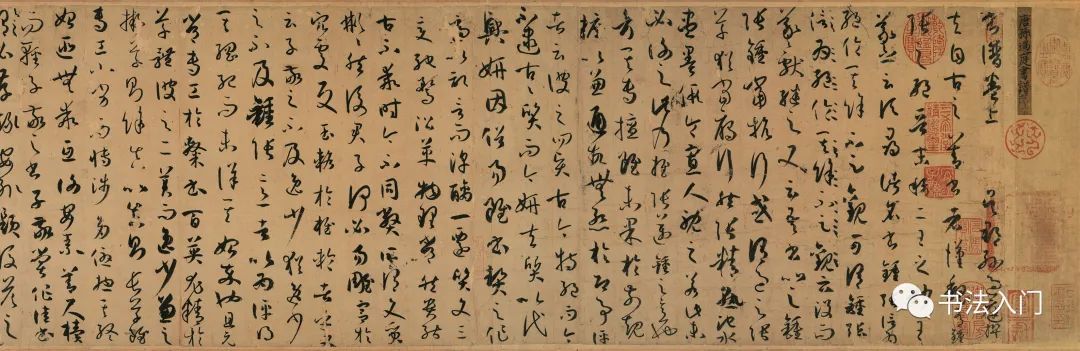 唐孫過庭書譜序
書譜卷上 吳郡孫過庭撰
夫自古之善書者漢魏有鍾
張之絕晉末稱二王之妙王
羲之云頃尋諸名書鍾張信為
絕倫其餘不足觀可謂鍾張
云沒而
羲獻繼之又云吾書比之鍾
張鍾當抗行或謂過之張
草猶當鴈行然張精熟池水
盡墨假令寡人耽之若此未
必謝之此乃推張邁鍾之意也
考其專擅雖未果於前規
摭以兼通故無慚於即事評
者云彼之四賢古今特絕而今
不逮古古質而今妍夫質以代
興妍因俗易雖書契之作
適以記言而淳醨一遷質文三
變馳騖沿革物理常然貴能
古不乖時今不同弊所謂文質
彬彬然後君子何必易雕宮於
穴處反玉輅於椎輪者乎又
云子敬之不及逸少猶逸少
之不及鍾張意者以為評得
其綱紀而未詳其始末也且元
常專工於隸書百英尤精於
草體彼之二美而逸少兼之
擬草則餘真比真則長草雖
專工小劣而博涉多優總其終
始匪無乖互謝安素善尺牘
而輕子敬之書子敬嘗作佳書
與之謂必存錄安輒題後答之
书法入门